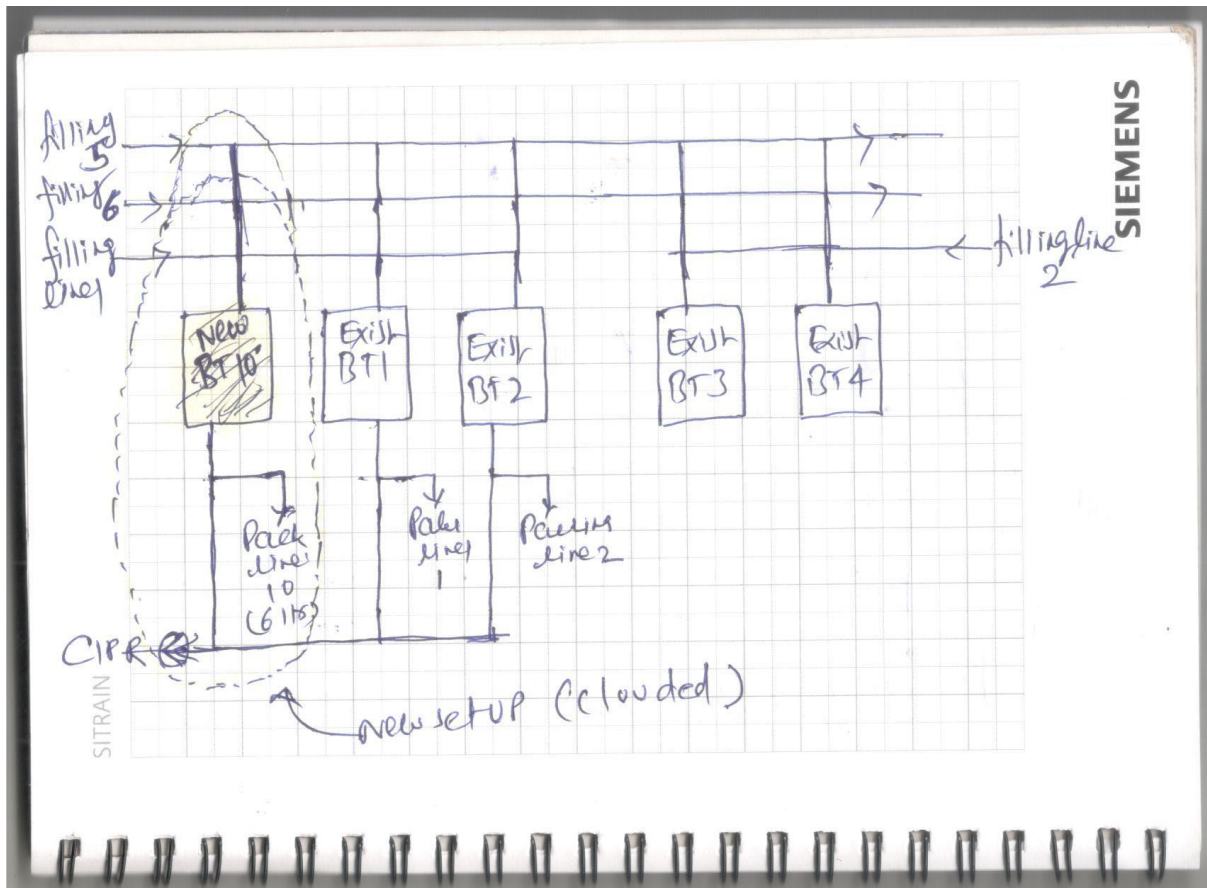 SIEMENS
filling
5
filling
6
filling
line1
fillingline
2
New
BT10
Exist
BT1
Exist
BT2
Exist
BT3
Exist
BT4
Pack
line
10
(6 ltr)
line
1
line 2
CIPR
New setup (clouded)
SITRAIN